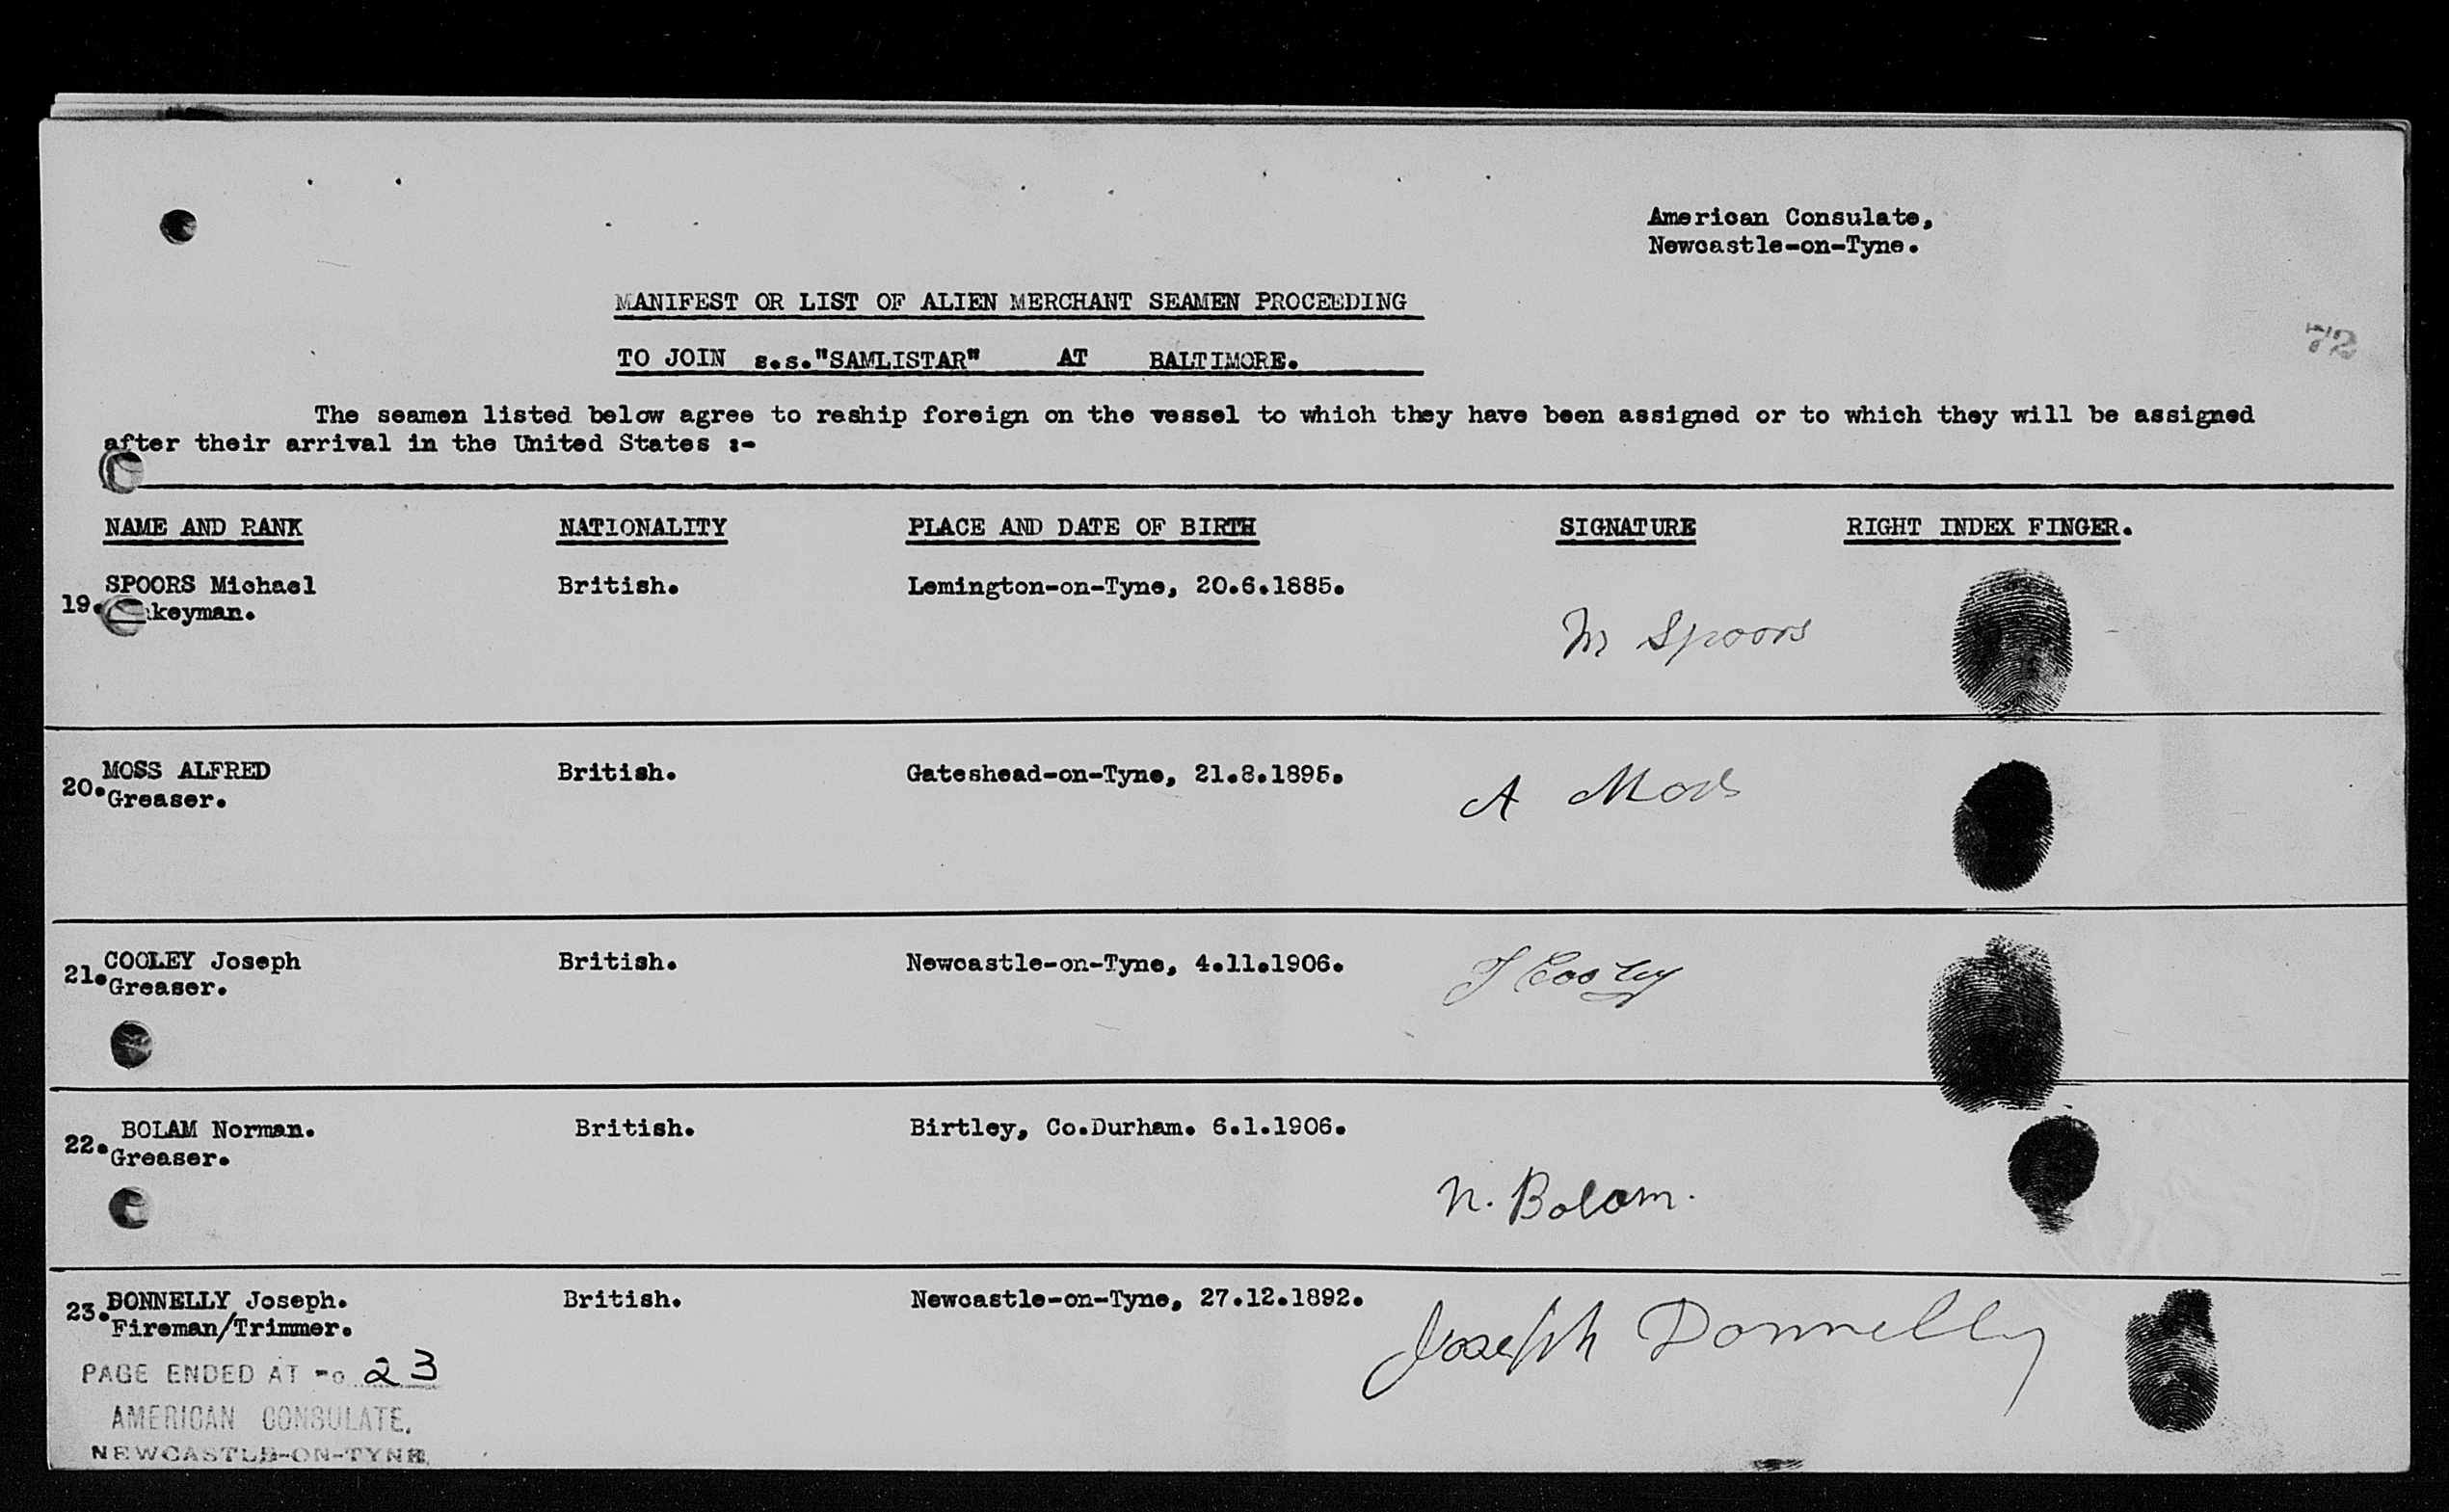 American Consulate,
Newcastle-on-Tyne.
MANIFEST OR LIST OF ALIEN MERCHANT SEAMEN PROCEEDING
TO JOIN s.s."SAMLISTAR" AT BALTIMORE.
72
The seamen listed below agree to reship foreign on the vessel to which they have been assigned or to which they will be assigned
after their arrival in the United States :-
NAME AND RANK NATIONALITY PLACE AND DATE OF BIRTH SIGNATURE RIGHT INDEX FINGER.
19. SPOORS Michael British. Lemington-on-Tyne, 20.6.1885.
keyman.
M Spoors
20. MOSS ALFRED British. Gateshead-on-Tyne, 21.8.1895.
Greaser.
A Moss
21. COOLEY Joseph British. Newcastle-on-Tyne, 4.11.1906.
Greaser.
J Cooley
22. BOLAM Norman. British. Birtley, Co.Durham. 6.1.1906.
Greaser.
N. Bolam.
23. DONNELLY Joseph. British. Newcastle-on-Tyne, 27.12.1892.
Fireman/Trimmer.
Joseph Donnelly
PAGE ENDED AT No 23
AMERICAN CONSULATE.
NEWCASTLE-ON-TYNE.